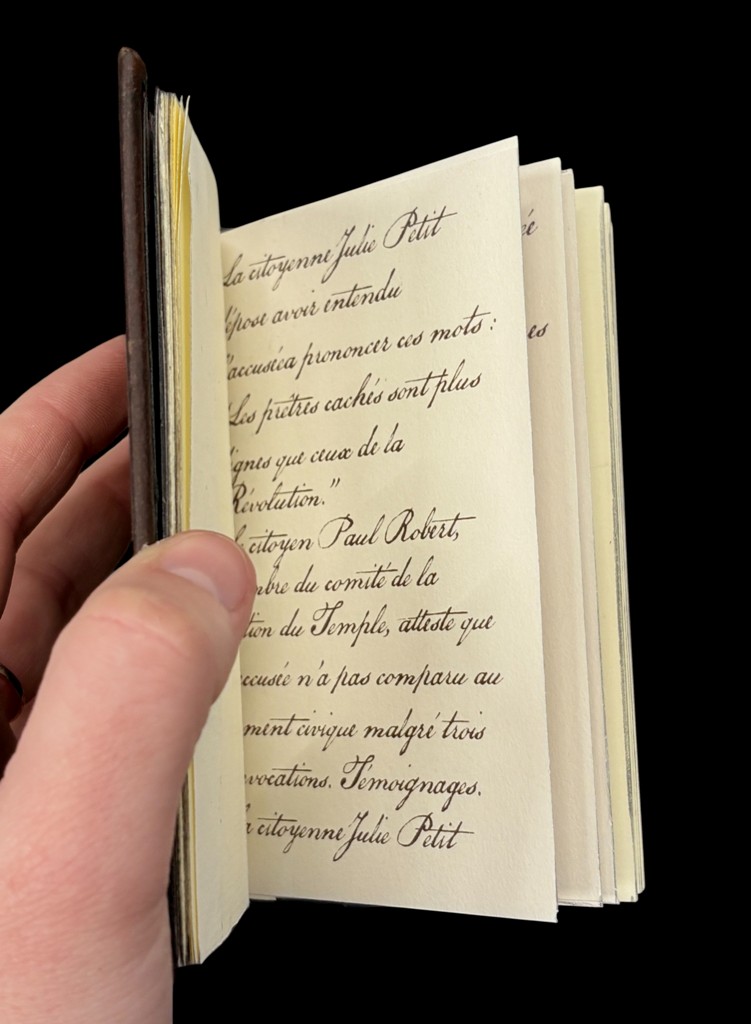 La citoyenne Julie Petit
épose avoir entendu
'accuséea prononcer ces mots :
“Les prêtres cachés sont plus
ignes que ceux de la
Révolution.”
e citoyen Paul Robert,
mbre du comité de la
tion du Temple, atteste que
ccusée n'a pas comparu au
ment civique malgré trois
vocations. Témoignages.
a citoyenne Julie Petit
ée
es